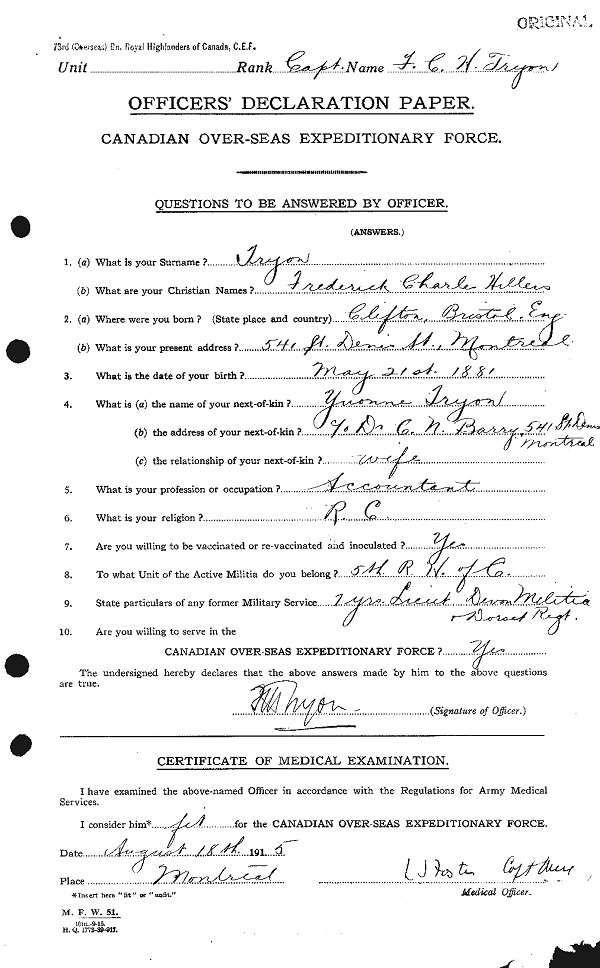 ORIGINAL
73rd (Overseas) Bn. Royal Highlanders of Canada, C.E.F.
Unit Rank Capt. Name F. C. H. Tryon
OFFICERS' DECLARATION PAPER.
CANADIAN OVER-SEAS EXPEDITIONARY FORCE.
QUESTIONS TO BE ANSWERED BY OFFICER.
(ANSWERS.)
1. (a) What is your Surname? Tryon
(b) What are your Christian Names? Frederick Charles Hillers
2. (a) Where were you born? (State place and country) Clifton, Bristol, Eng
(b) What is your present address? 541 St. Denis St., Montreal
3. What is the date of your birth? May 21st. 1881
4. What is (a) the name of your next-of-kin? Yvonne Tryon
(b) the address of your next-of-kin? c/o Dr C. N. Barry, 541 St Denis
Montreal
(c) the relationship of your next-of-kin? wife
5. What is your profession or occupation? Accountant
6. What is your religion? R C.
7. Are you willing to be vaccinated or re-vaccinated and inoculated? Yes
8. To what Unit of the Active Militia do you belong? 5th R H. of C.
9. State particulars of any former Military Service 7 yrs. Lieut Devon Militia
+ Dorset Regt.
10. Are you willing to serve in the
CANADIAN OVER-SEAS EXPEDITIONARY FORCE? Yes
The undersigned hereby declares that the above answers made by him to the above questions
are true.
Tryon (Signature of Officer.)
CERTIFICATE OF MEDICAL EXAMINATION.
I have examined the above-named Officer in accordance with the Regulations for Army Medical
Services.
I consider him* fit for the CANADIAN OVER-SEAS EXPEDITIONARY FORCE.
Date August 18th. 1915
Place Montreal Foster Capt
Medical Officer.
*Insert here "fit" or "unfit."
M. F. W. 51.
10m.-9-15.
H. Q. 1772-39-917.